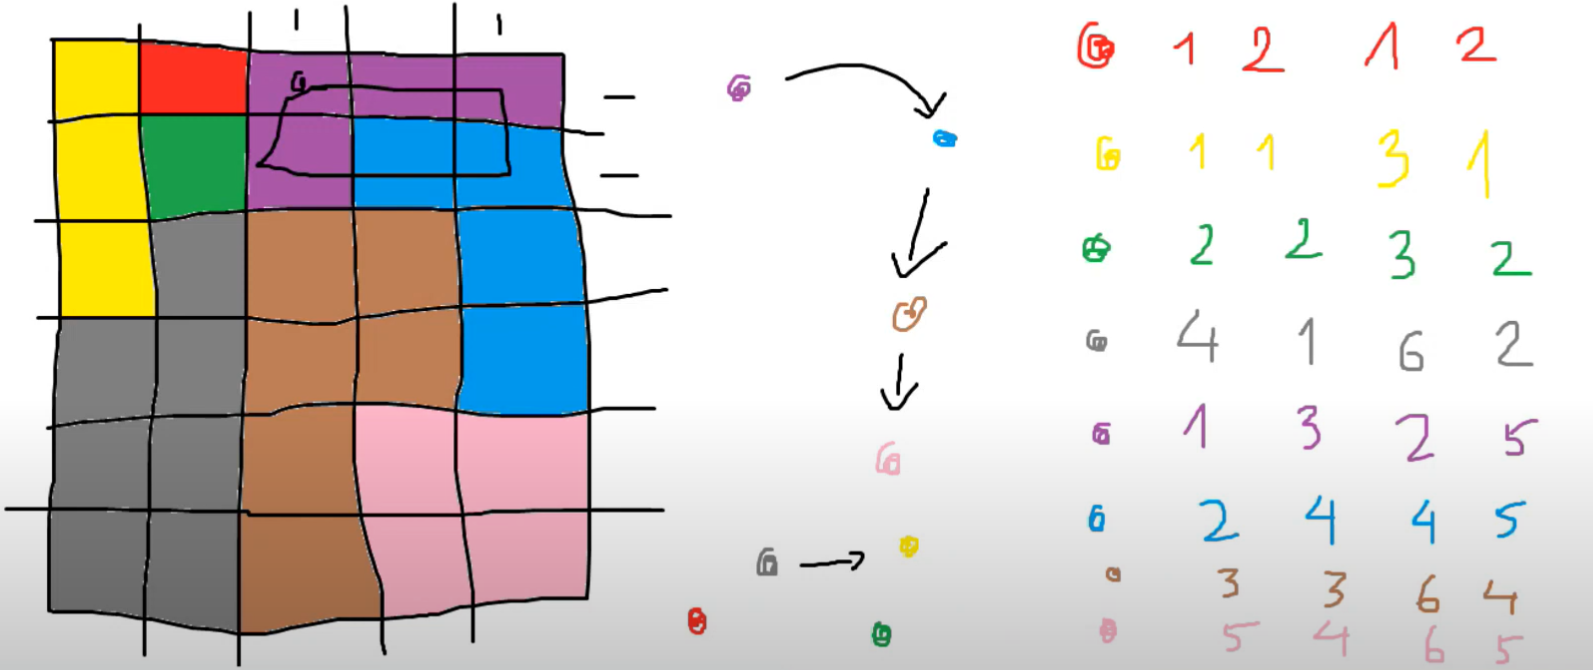 1 2 1 2
1 1 3 1
2 2 3 2
4 1 6 2
1 3 2 5
2 4 4 5
3 3 6 4
5 4 6 5